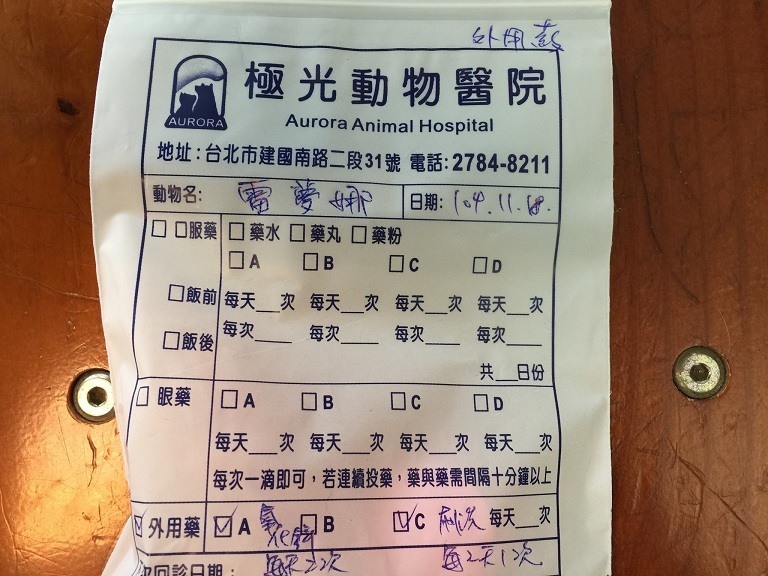 外用藥
極光動物醫院
AURORA
Aurora Animal Hospital
地址:台北市建國南路二段31號 電話:2784-8211
動物名: 雷夢娜 日期: 104.11.18.
□ 口服藥 □藥水 □藥丸 □藥粉
□A □B □C □D
□飯前 每天__次 每天__次 每天__次 每天__次
□飯後 每次___ 每次___ 每次___ 每次___
共__日份
□ 眼藥 □A □B □C □D
每天__次 每天__次 每天__次 每天__次
每次一滴即可,若連續投藥,藥與藥需間隔十分鐘以上
☑外用藥 ☑A □B ☑C 每天__次
次回診日期: 每天2次 每2天1次